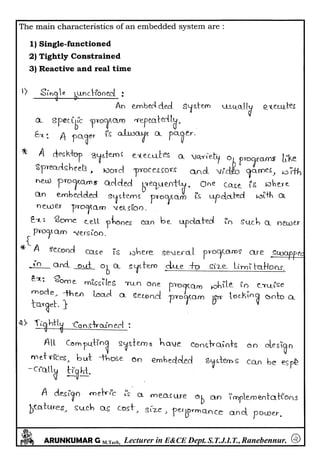 The main characteristics of an embedded system are :
1) Single-functioned
2) Tightly Constrained
3) Reactive and real time
1) Single functioned :
An embedded system usually executes
a specific program repeatedly.
Ex: A pager is always a pager.
* A desktop systems executes a variety of programs like
spreadsheets, word processors and video games, with
new programs added frequently. One case is where
an embedded systems program is updated with a
newer program version.
Ex: Some cell phones can be updated in such a newer
program version.
{
* A second case is where several programs are swapped
in and out of a system due to size limitations.
Ex: Some missiles run one program while in cruise
mode, then load a second program for locking onto a
target. }
2) Tightly Constrained :
All Computing systems have constraints on design
metrics, but those on embedded systems can be espe
-cially tight.
A design metric is a measure of an implementations
features, such as cost, size, performance and power.
ARUNKUMAR G M.Tech, Lecturer in E&CE Dept. S.T.J.I.T., Ranebennur.